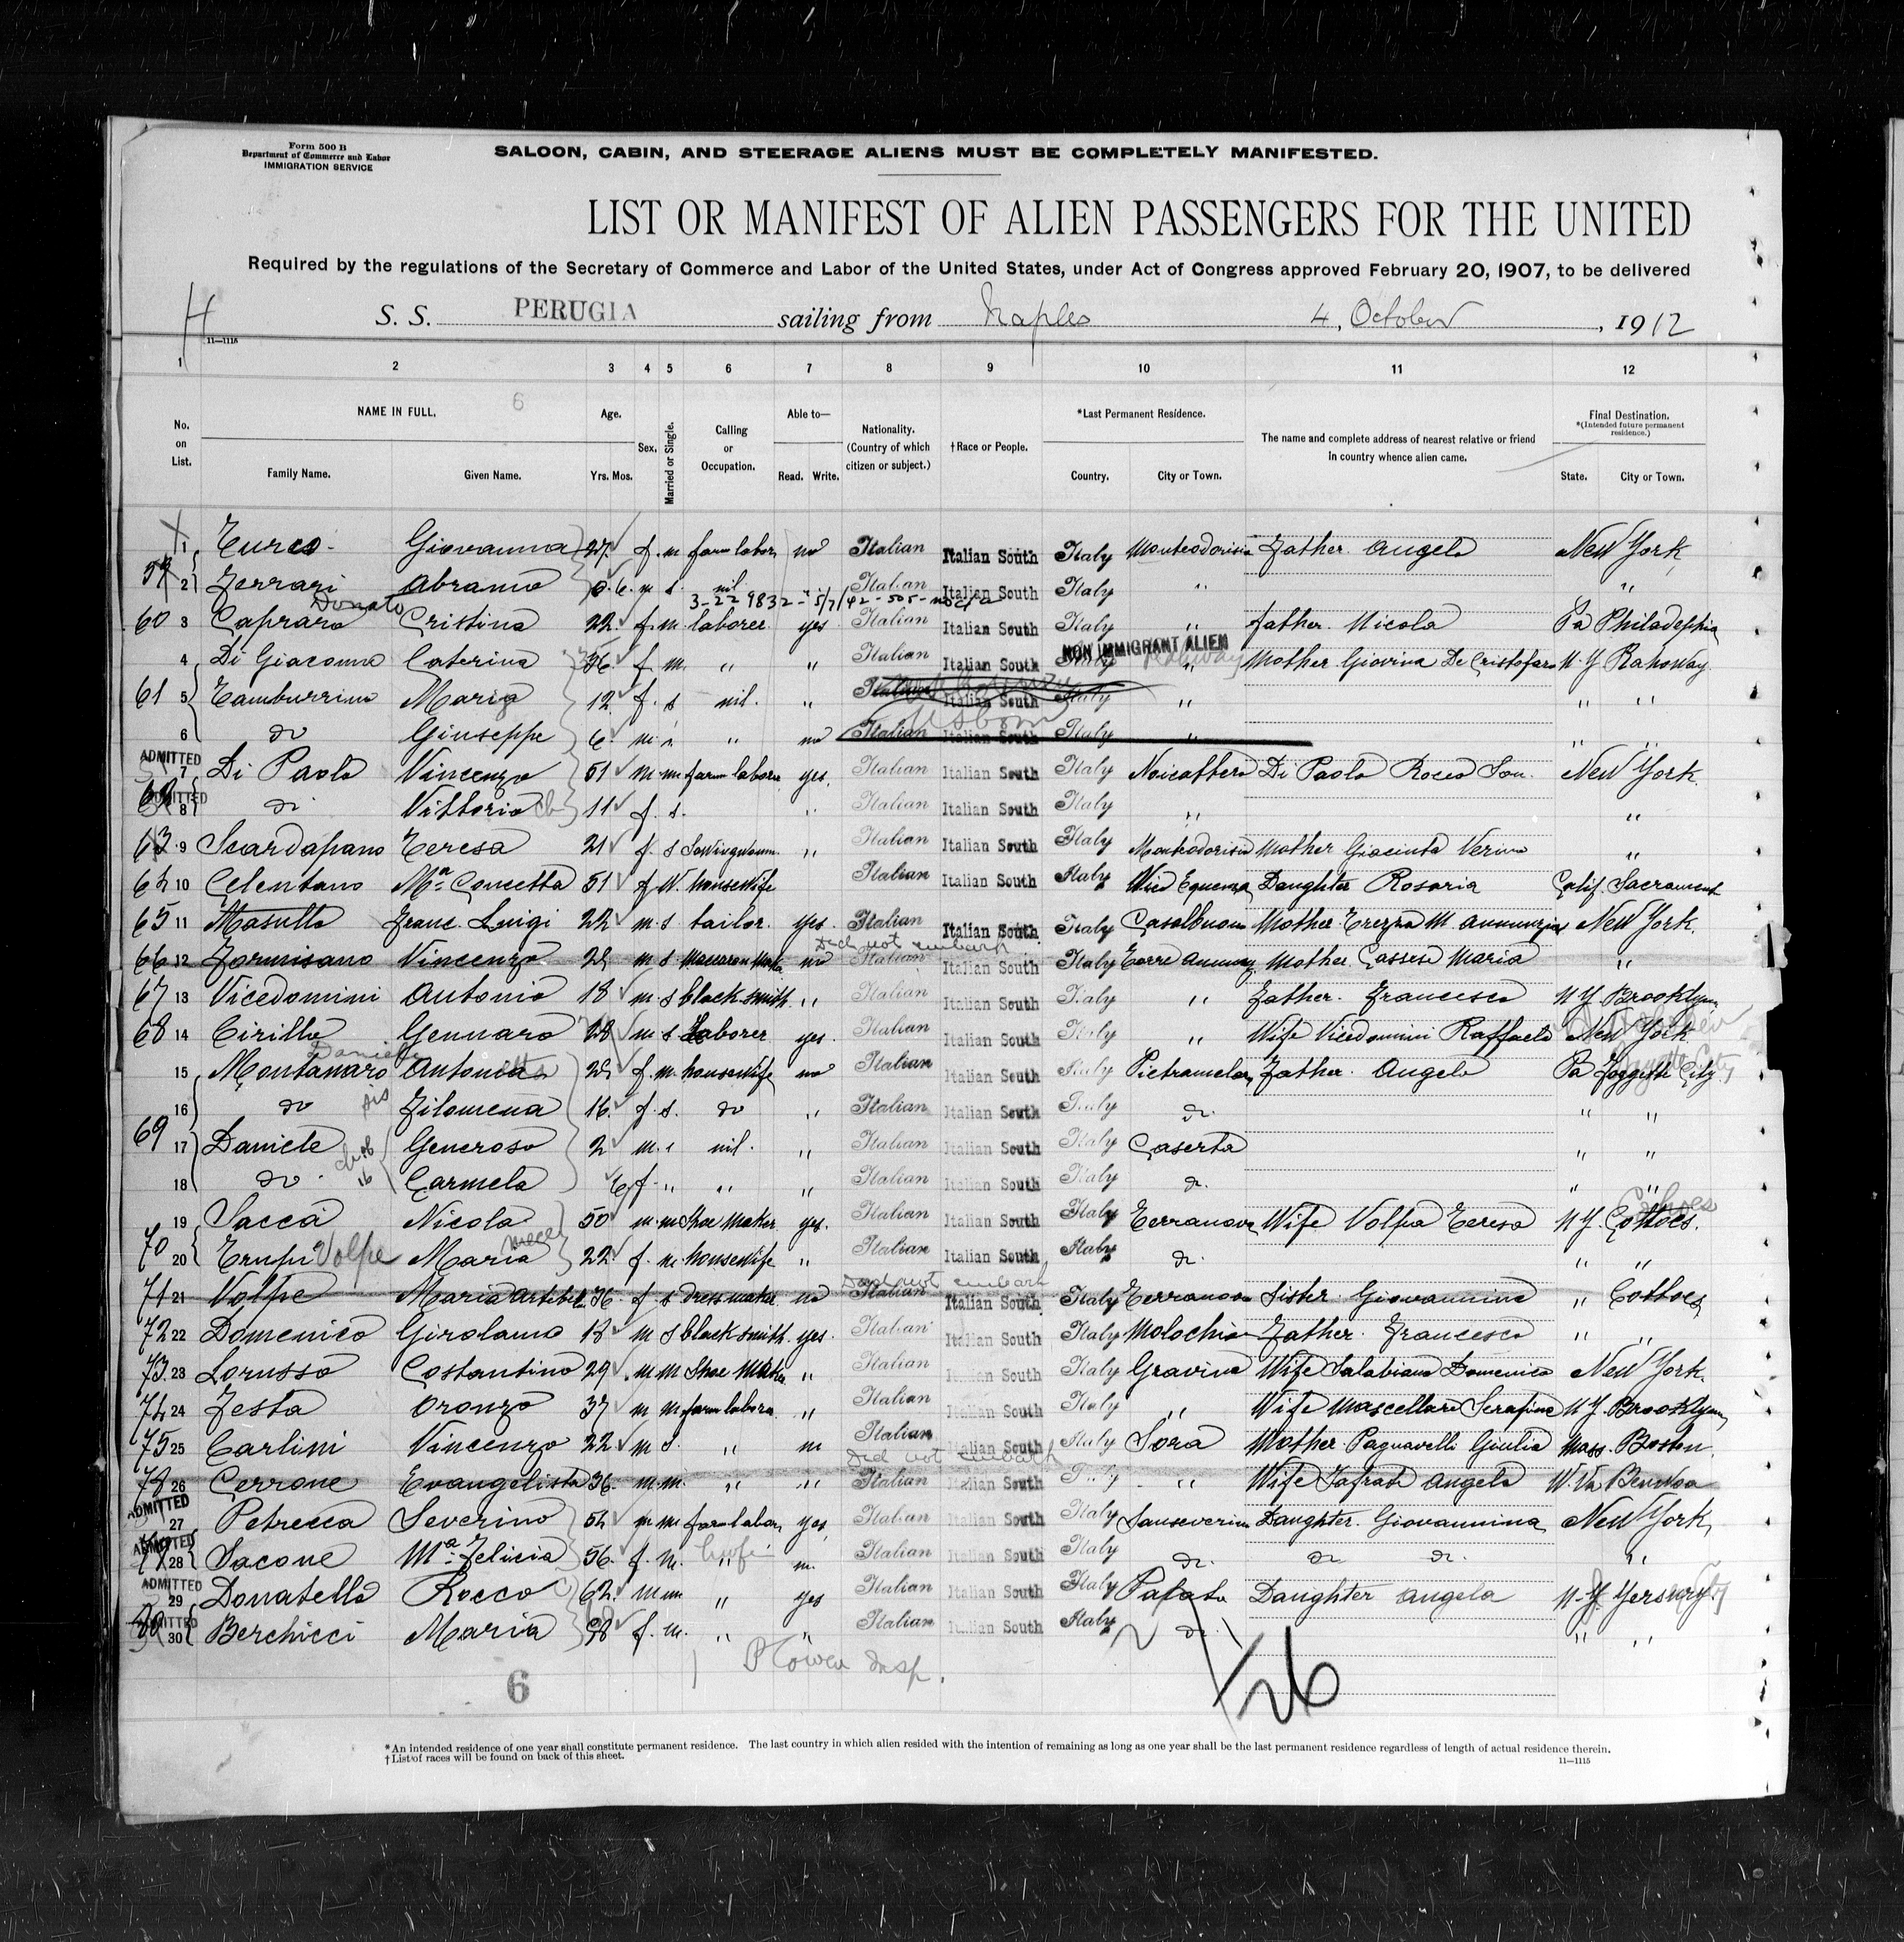 Form 500 B
Department of Commerce and Labor
IMMIGRATION SERVICE
SALOON, CABIN, AND STEERAGE ALIENS MUST BE COMPLETELY MANIFESTED.
LIST OR MANIFEST OF ALIEN PASSENGERS FOR THE UNITED
Required by the regulations of the Secretary of Commerce and Labor of the United States, under Act of Congress approved February 20, 1907, to be delivered
H S. S. PERUGIA sailing from Naples 4, October, 1912
11—1115
1 2 3 4 5 6 7 8 9 10 11 12
No. on List. NAME IN FULL. 6 Family Name. Given Name. Age. Yrs. Mos. Sex. Married or Single. Calling or Occupation. Able to— Read. Write. Nationality. (Country of which citizen or subject.) †Race or People. *Last Permanent Residence. Country. City or Town. The name and complete address of nearest relative or friend in country whence alien came. Final Destination. *(Intended future permanent residence.) State. City or Town.
1 Turco Giovanna 27 f. m. farm labor no Italian Italian South Italy Monteodorisio Father Angelo New York
2 Ferrari Abramo 0. 6. m s. nil Italian Italian South Italy " "
Donato
60 3 Capraro Cristina 22 f. m. laborer yes Italian Italian South Italy " Father. Nicola Pa Philadelphia
NON IMMIGRANT ALIEN
4 Di Giacomo Caterina 36 f. m. " " Italian Italian South " Mother Giovina De Cristofaro N. Y Rahoway
61 5 Tamburrino Maria 12 f. s nil. " Italian Italian South Italy " " "
6 do Giuseppe 6 m. " no Italian Italian South Italy " " "
ADMITTED 7 Di Paolo Vincenzo 51 m. m farm labor yes Italian Italian South Italy Noicattero Di Paolo Rocco Son. New York
ADMITTED 8 do Vittoria 11 f. s. Italian Italian South Italy " "
63 9 Scardapano Teresa 21 f. s " Italian Italian South Italy Monteodorisio Mother Giacinta "
64 10 Celentano Mª Concetta 51 f W. housewife Italian Italian South Italy Vico Equense Daughter Rosaria Calif. Sacrament
65 11 Masullo Franc. Luigi 22 m. s tailor. yes. Italian Italian South Italy Casalbuono Mother New York.
Did not embark
66 12 Formisano Vincenzo m. s no Italian Italian South Italy Mother Cassese Maria "
67 13 Vicedomini Antonio 18 m. s blacksmith " Italian Italian South Italy " Father. Francesco N Y Brooklyn
68 14 Cirillo Gennaro 28 m s Laborer yes Italian Italian South Italy " Wife Vicedomini Raffaela New York
Daniele
15 Montanaro Antonia f. m. housewife no Italian Italian South Italy Pietramelara Father. Angelo Pa
16 do Filomena 16 f. s. do " Italian Italian South Italy do. " "
69 17 Daniele Generoso 2 m. nil. " Italian Italian South Italy Caserta " "
18 do Carmela f. " " " Italian Italian South Italy do. " "
19 Sacca Nicola 50 m. m Shoe Maker yes. Italian Italian South Italy Terranova Wife Volpa Teresa N Y Cohoes
70 20 Volpe Maria niece 22 f. m housewife " Italian Italian South Italy do. " "
Did not embark
71 21 Volpe Maria 36 f. s dress maker no Italian Italian South Italy Terranova Sister. Giovannina "
72 22 Domenico Girolamo 18 m s blacksmith. yes. Italian Italian South Italy Molochio Father. Francesco " "
73 23 Lorusso Costantino 29 m m Shoe Maker " Italian Italian South Italy Gravina Wife Domenica New York.
74 24 Festa Oronzo 37 m m farm labor " Italian Italian South Italy " Wife Mascellaro Serafina N Y Brooklyn
75 25 Carlini Vincenzo 22 m s. " Italian Italian South Italy Sora Mother Giulia Mass. Boston
Did not embark
78 26 Cerrone Evangelista 36. m m. " " Italian Italian South Italy " Wife Angela W. Va
ADMITTED 27 Petrecca Severino m m farm labor yes Italian Italian South Italy Sanseverino Daughter. Giovannina New York
ADMITTED 28 Iacone Mª Felicia 56. f. m. " Italian Italian South Italy do. do do. "
ADMITTED 29 Donatello Rocco 62 m m " yes Italian Italian South Italy Palata Daughter Angela
ADMITTED 30 Berchicci Maria f. m. " " Italian Italian South Italy do. " "
6
26
*An intended residence of one year shall constitute permanent residence. The last country in which alien resided with the intention of remaining as long as one year shall be the last permanent residence regardless of length of actual residence therein.
†List of races will be found on back of this sheet.
11—1115